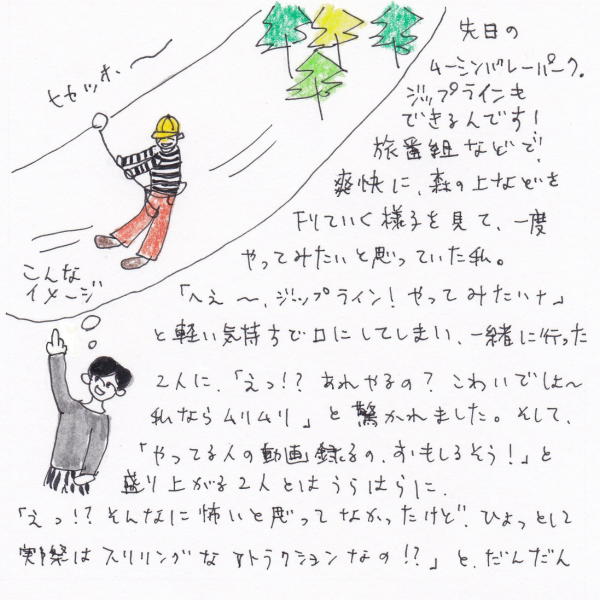 先日の
ムーミンバレーパーク。
ジップラインも
できるんです!
旅番組などで、
爽快に、森の上などを
下りていく様子を見て、一度
やってみたいと思っていた私。
「へぇ〜、ジップライン!やってみたいナ」
と軽い気持ちで口にしてしまい、一緒に行った
2人に、「えっ!?あれやるの?こわいでは〜
私ならムリムリ」と驚かれました。そして、
「やってる人の動画録るの、おもしろそう!」と
盛り上がる2人とはうらはらに、
「えっ!?そんなに怖いと思ってなかったけど、ひょっとして
実際はスリリングなアトラクションなの!?」と、だんだん
ヒャッホー〜
こんな
イメージ